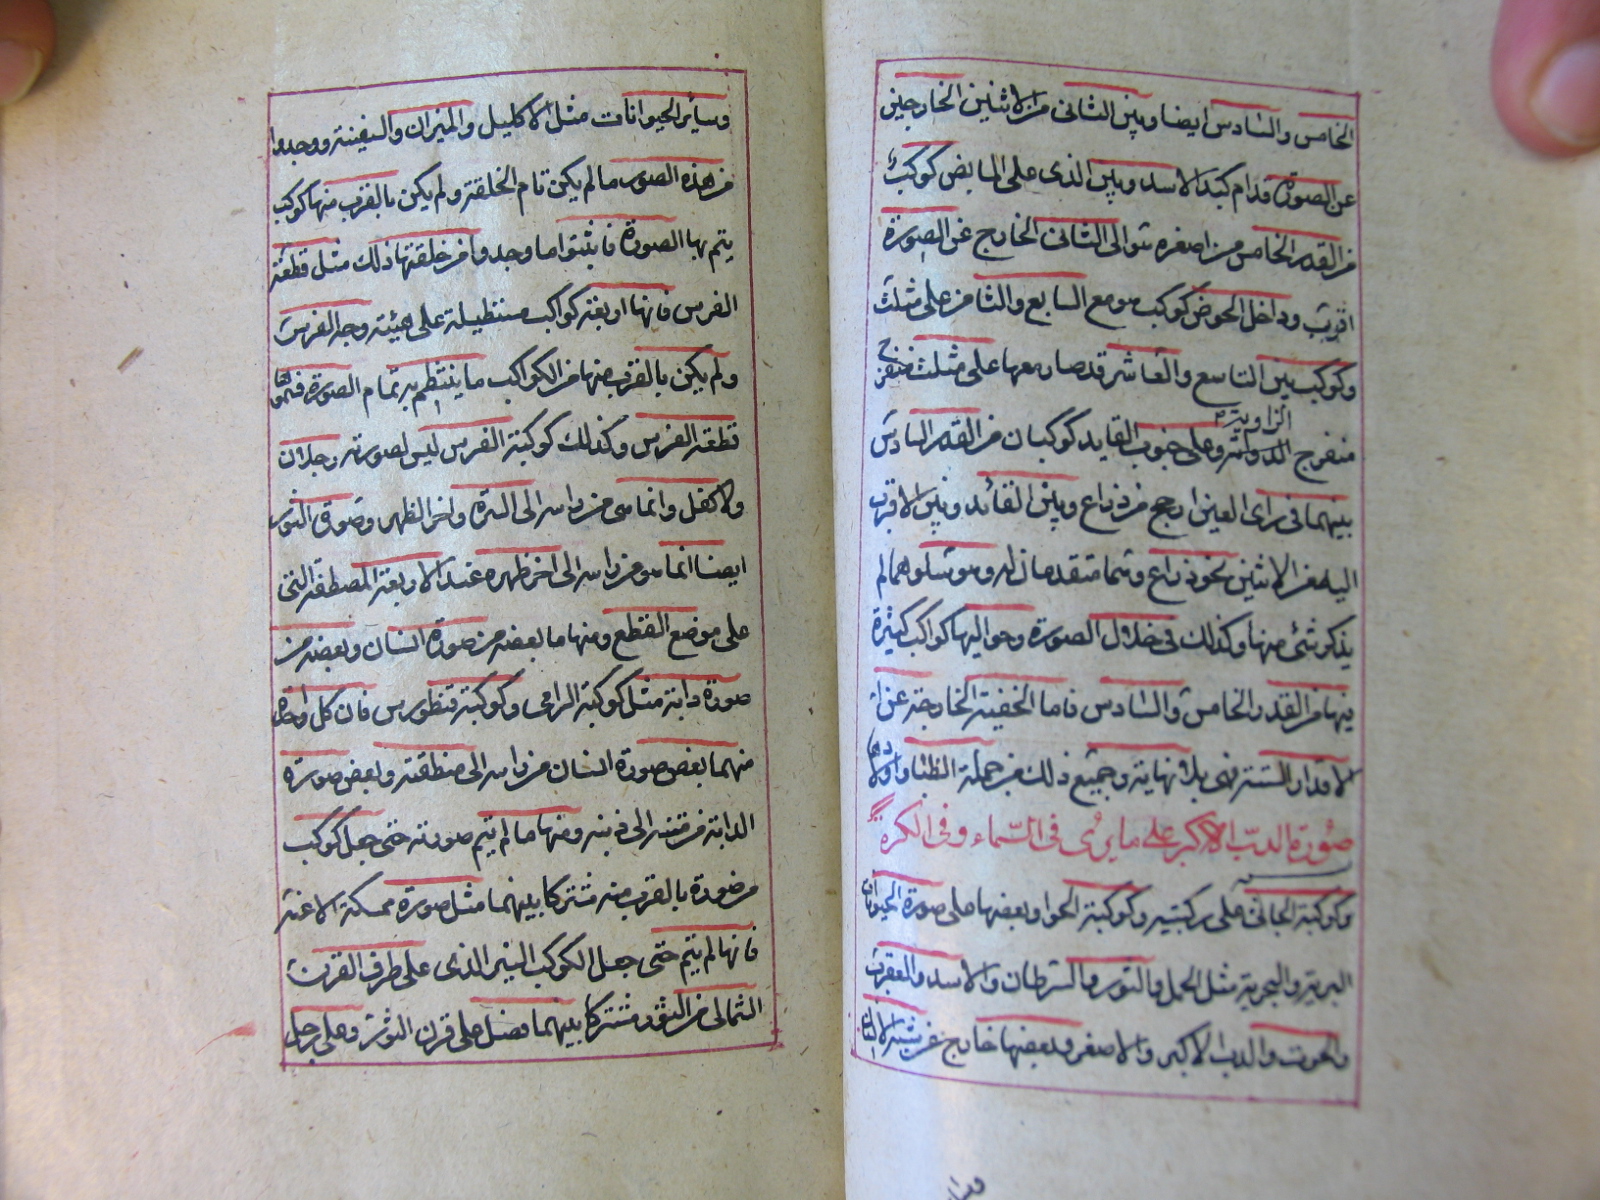 الخامس والسادس ايضا وبين الثانى من الاثنين الخارجين
عن الصورة قدام كبد الاسد وبين الذى على المابض كوكب
من القدر الخامس من اصغره يتوالى الثانى الخارج عن الصورة
اقرب وداخل الحوض كوكب هو مع السابع والثامن على مثلث
وكوكب بين التاسع والعاشر قد صار معها على مثلث منفرج
الزاوية
منفرج وعلى جنوب القايد كوكبان من القدر السادس
بينهما فى راى العين ارجح من ذراع وبين القائد وبين الاقرب
اليه من الاثنين نحو ذراع وهما متقدمان له وهو يتلوهما لم
يذكر شئ منها وكذلك فى خلال الصورة وحواليها كواكب كثيرة
فيها من القدر الخامس والسادس فاما الخفية الخارجة عن
الاقدار الستة فهى بلا نهاية وجميع ذلك من جملة الظباء واولادها
صورة الدب الاكبر على ما يرى فى السماء وفى الكرة
وكوكبة الجاثى على ركبتيه وكوكبة الحوا وبعضها على صورة الحيوانات
البرية والبحرية مثل الحمل والثور والسرطان والاسد والعقرب
والحوت والدب الاكبر والاصغر وبعضها خارج عن شبه الانسان
وسائر الحيوانات مثل الاكليل والميزان والسفينة ووجدوا
من هذه الصور ما لم يكن تام الخلقة ولم يكن بالقرب منها كوكب
يتم بها الصورة فاثبتوا ما وجدوا من خلقتها ذلك مثل قطعة
الفرس فانها اربعة كواكب مستطيلة على هيئة وجه الفرس
ولم يكن بالقرب منها من الكواكب ما ينتظم به تمام الصورة فسموها
قطعة الفرس وكذلك كوكبة الفرس ليس لصورته رجلان
ولا كفل وانما هى من راسه الى السرة واخر الظهر وصورة الثور
ايضا انما هو من راسه الى اخر ظهره عند الاربعة المصطفة التى
على موضع القطع ومنها ما بعضه من صورة انسان وبعضه من
صورة دابة مثل كوكبة الرامى وكوكبة قنطورس فان كل واحدة
منهما بعض صورة انسان من راسه الى منطقته وبعض صورة
الدابة من متنه الى ذنبه ومنها ما لم يتم صورته حتى جعل كوكب
من صورة بالقرب منه مشتركا بينهما مثل صورة ممسك الاعنة
فانها لم يتم حتى جعل الكوكب النير الذى على طرف القرن
الشمالى من الثور مشتركا بينهما فصل على قرن الثور وعلى رجل